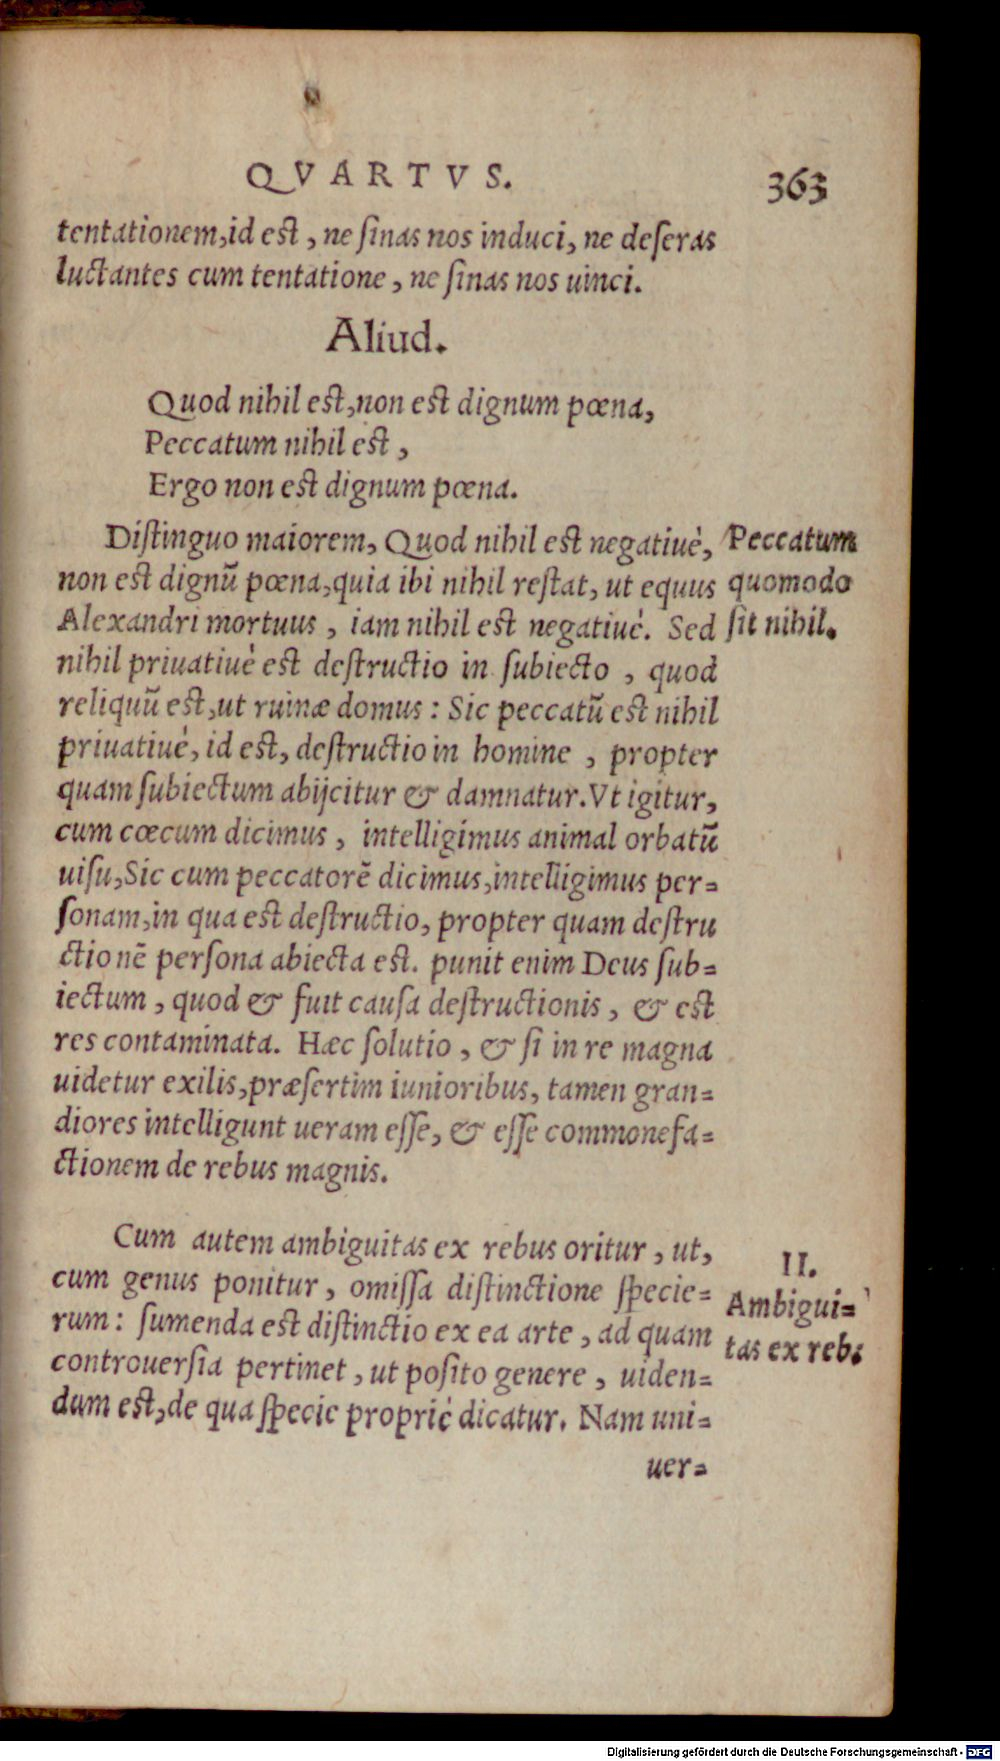 QVARTVS.
363
tentationem, id est, ne ſinas nos induci, ne deſeras
luctantes cum tentatione, ne ſinas nos uinci.
Aliud.
Quod nihil est, non est dignum pœna,
Peccatum nihil est,
Ergo non est dignum pœna.
Diſtinguo maiorem, Quod nihil est negatiuè,
non est dignũ pœna, quia ibi nihil reſtat, ut equus
Alexandri mortuus, iam nihil est negatiuè. Sed
nihil priuatiuè est deſtructio in ſubiecto, quod
reliquũ est, ut ruinæ domus: Sic peccatũ est nihil
priuatiuè, id est, deſtructio in homine, propter
quam ſubiectum abijcitur & damnatur. Vt igitur,
cum cœcum dicimus, intelligimus animal orbatũ
uiſu, Sic cum peccatorẽ dicimus, intelligimus per=
ſonam, in qua est deſtructio, propter quam deſtru
ctionẽ perſona abiecta est. punit enim Deus ſub=
iectum, quod & fuit cauſa deſtructionis, & est
res contaminata. Hæc ſolutio, & ſi in re magna
uidetur exilis, præſertim iunioribus, tamen gran=
diores intelligunt ueram eſſe, & eſſe commonefa=
ctionem de rebus magnis.
Peccatum
quomodo
ſit nihil.
Cum autem ambiguitas ex rebus oritur, ut,
cum genus ponitur, omiſſa diſtinctione ſpecie=
rum: ſumenda est diſtinctio ex ea arte, ad quam
controuerſia pertinet, ut poſito genere, uiden=
dum est, de qua ſpecie propriè dicatur. Nam uni=
II.
Ambigui=
tas ex reb.
uer=
Digitalisierung gefördert durch die Deutsche Forschungsgemeinschaft - DFG